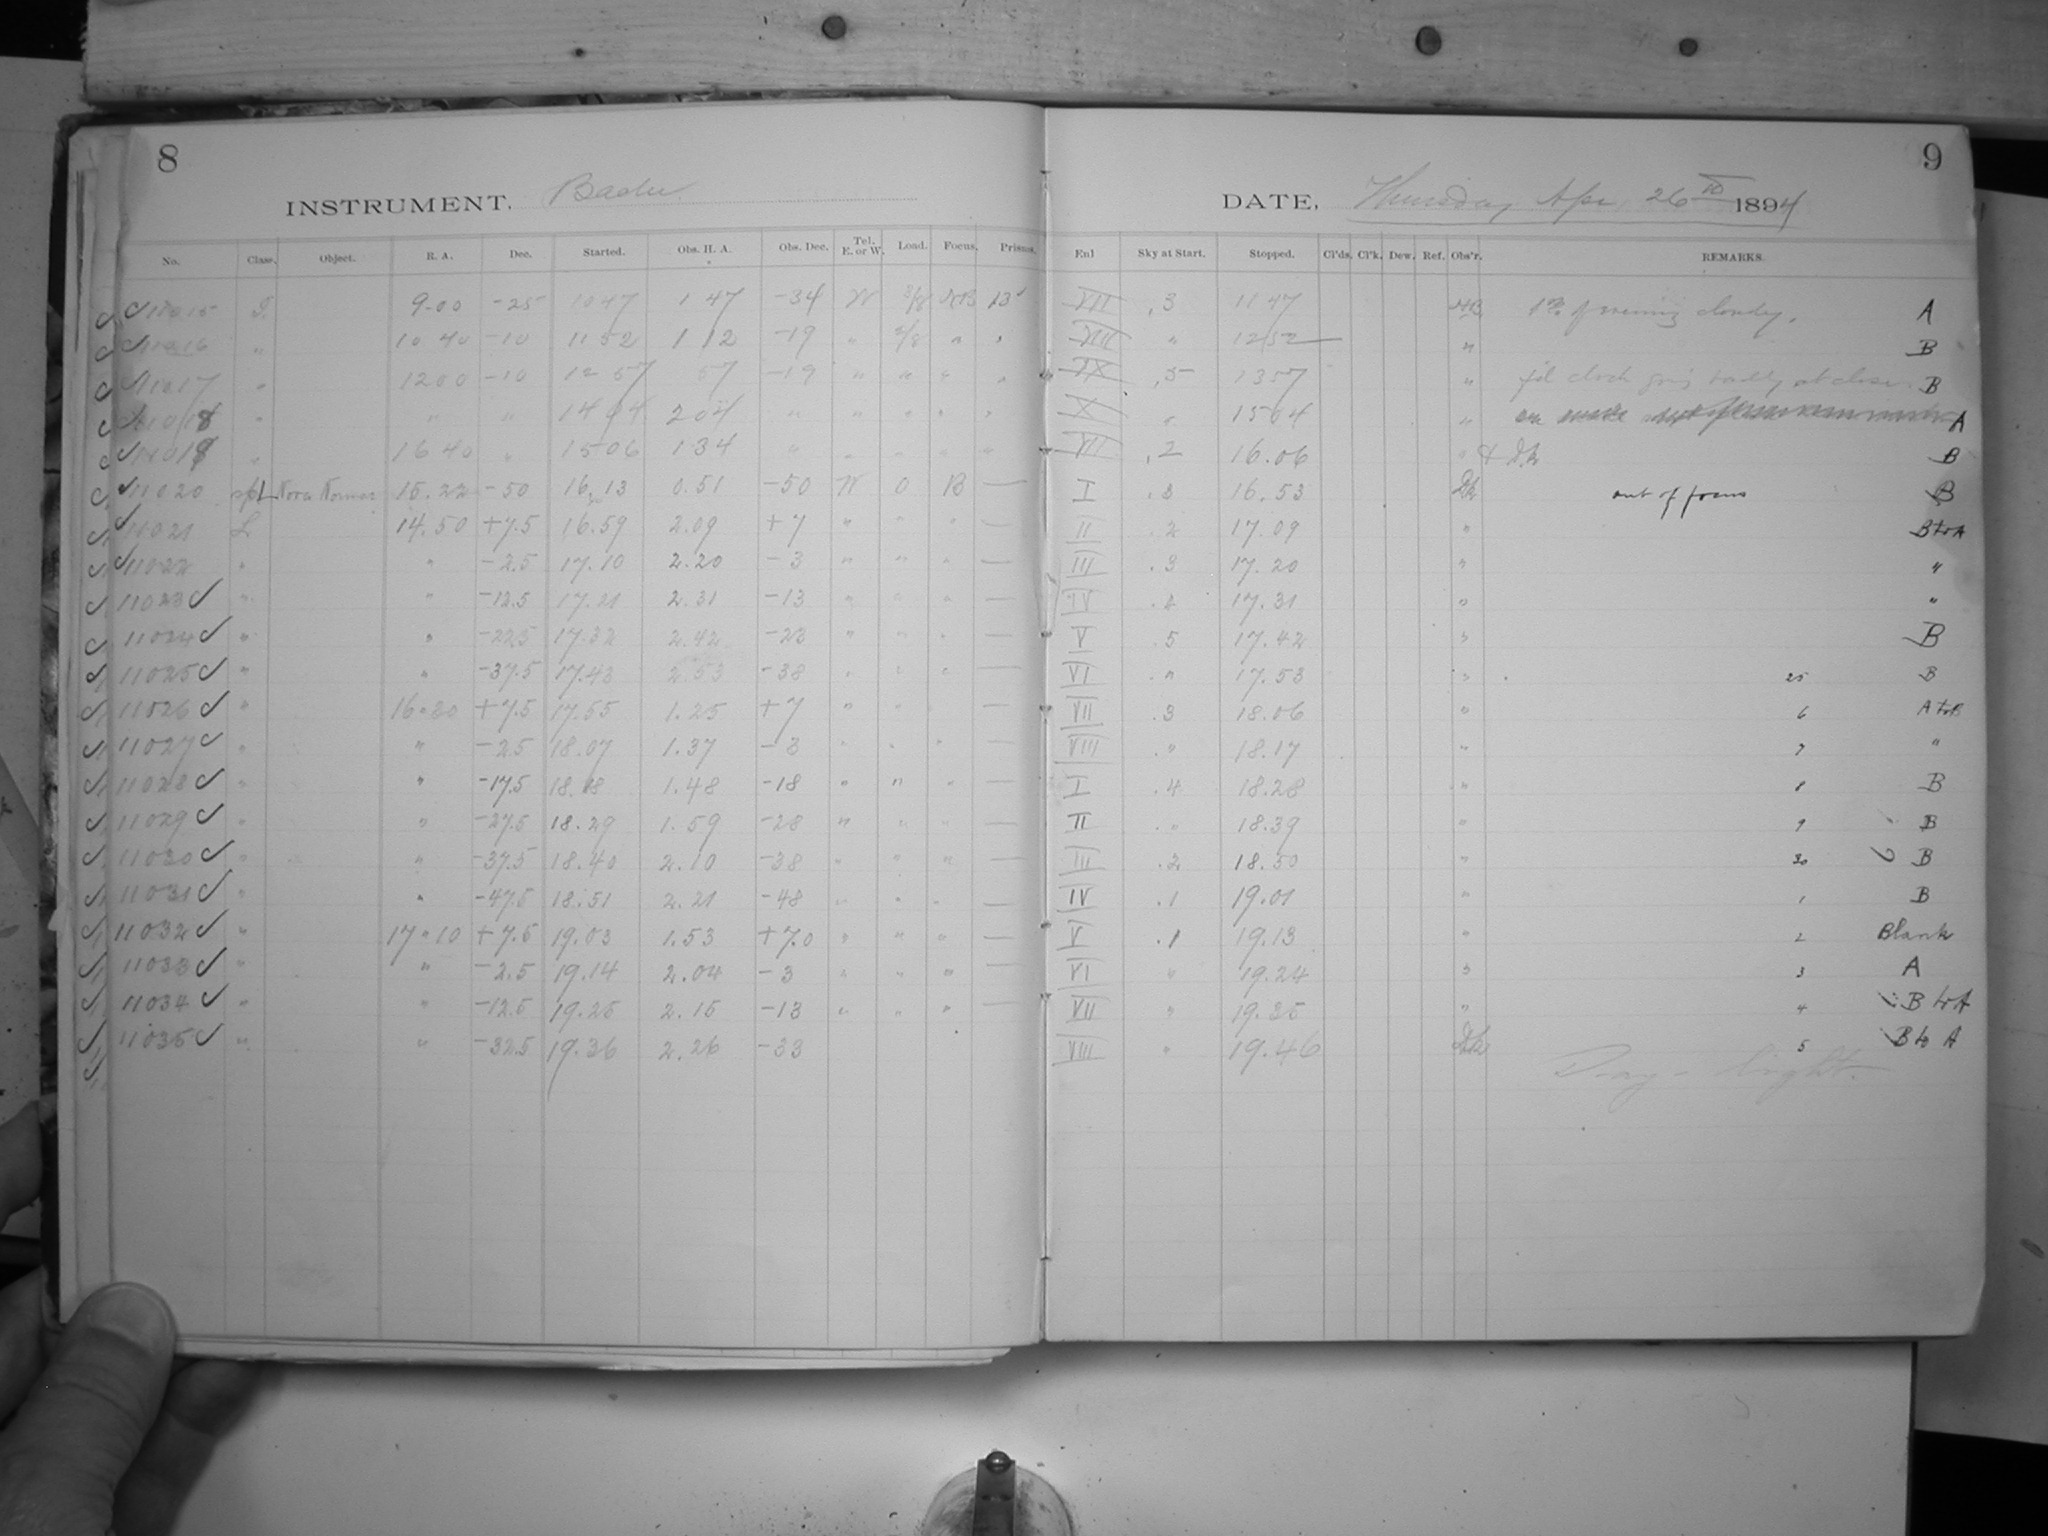 8
9
INSTRUMENT. Bache
DATE, Thursday Apr 26th 1894
No. Class. Object. R. A. Dec. Started. Obs. H. A. Obs. Dec. Tel. E. or W. Load. Focus. Prisms. Enl Sky at Start. Stopped. Cl'ds. Cl'k. Dew. Ref. Obs'r. REMARKS.
11015 9.00 -25 1047 1 47 -34 W 13 VII .3 11 47 1st of evening cloudy. A
11016 " 10 40 -10 11 52 1 12 -19 " " " VIII " 1252 " B
11017 " 1200 -10 12 57 57 -19 " " " " IX .5 1357 " B
11018 " " " 1404 204 " " " " " X " 1504 " A
11019 " 16 40 " 1506 134 " " " " " .2 16.06 " B
11020 Nova Normae 15.22 -50 16.13 0.51 -50 W 0 B — I .3 16.53 out of focus B
11021 L 14.50 +7.5 16.59 2.09 +7 " " " — II .2 17.09 " B to A
11022 " " -2.5 17.10 2.20 -3 " " " — III .3 17.20 " "
11023 " " -12.5 17.21 2.31 -13 " " " — IV .4 17.31 " "
11024 " " -22.5 17.32 2.42 -23 " " " — V .5 17.42 " B
11025 " " -37.5 17.43 2.53 -38 " " " — VI " 17.53 " 25 B
11026 " 16.30 +7.5 17.55 1.25 +7 " " " — VII .3 18.06 " 6 A to B
11027 " " -2.5 18.07 1.37 -3 " " " — VIII " 18.17 " 7 "
11028 " " -17.5 18.18 1.48 -18 " " " — I .4 18.28 " 8 B
11029 " " -27.5 18.29 1.59 -28 " " " — II " 18.39 " 9 B
11030 " " -37.5 18.40 2.10 -38 " " " — III .2 18.50 " 30 B
11031 " " -47.5 18.51 2.21 -48 " " " — IV .1 19.01 1 B
11032 " 17.10 +7.5 19.03 1.53 +7.0 " " " — V .1 19.13 " 2 Blank
11033 " " -2.5 19.14 2.04 -3 " " " — VI " 19.24 " 3 A
11034 " " -12.5 19.25 2.15 -13 " " " — VII " 19.35 " 4 B to A
11035 " " -32.5 19.36 2.26 -33 VIII " 19.46 5 B to A
Day-light.